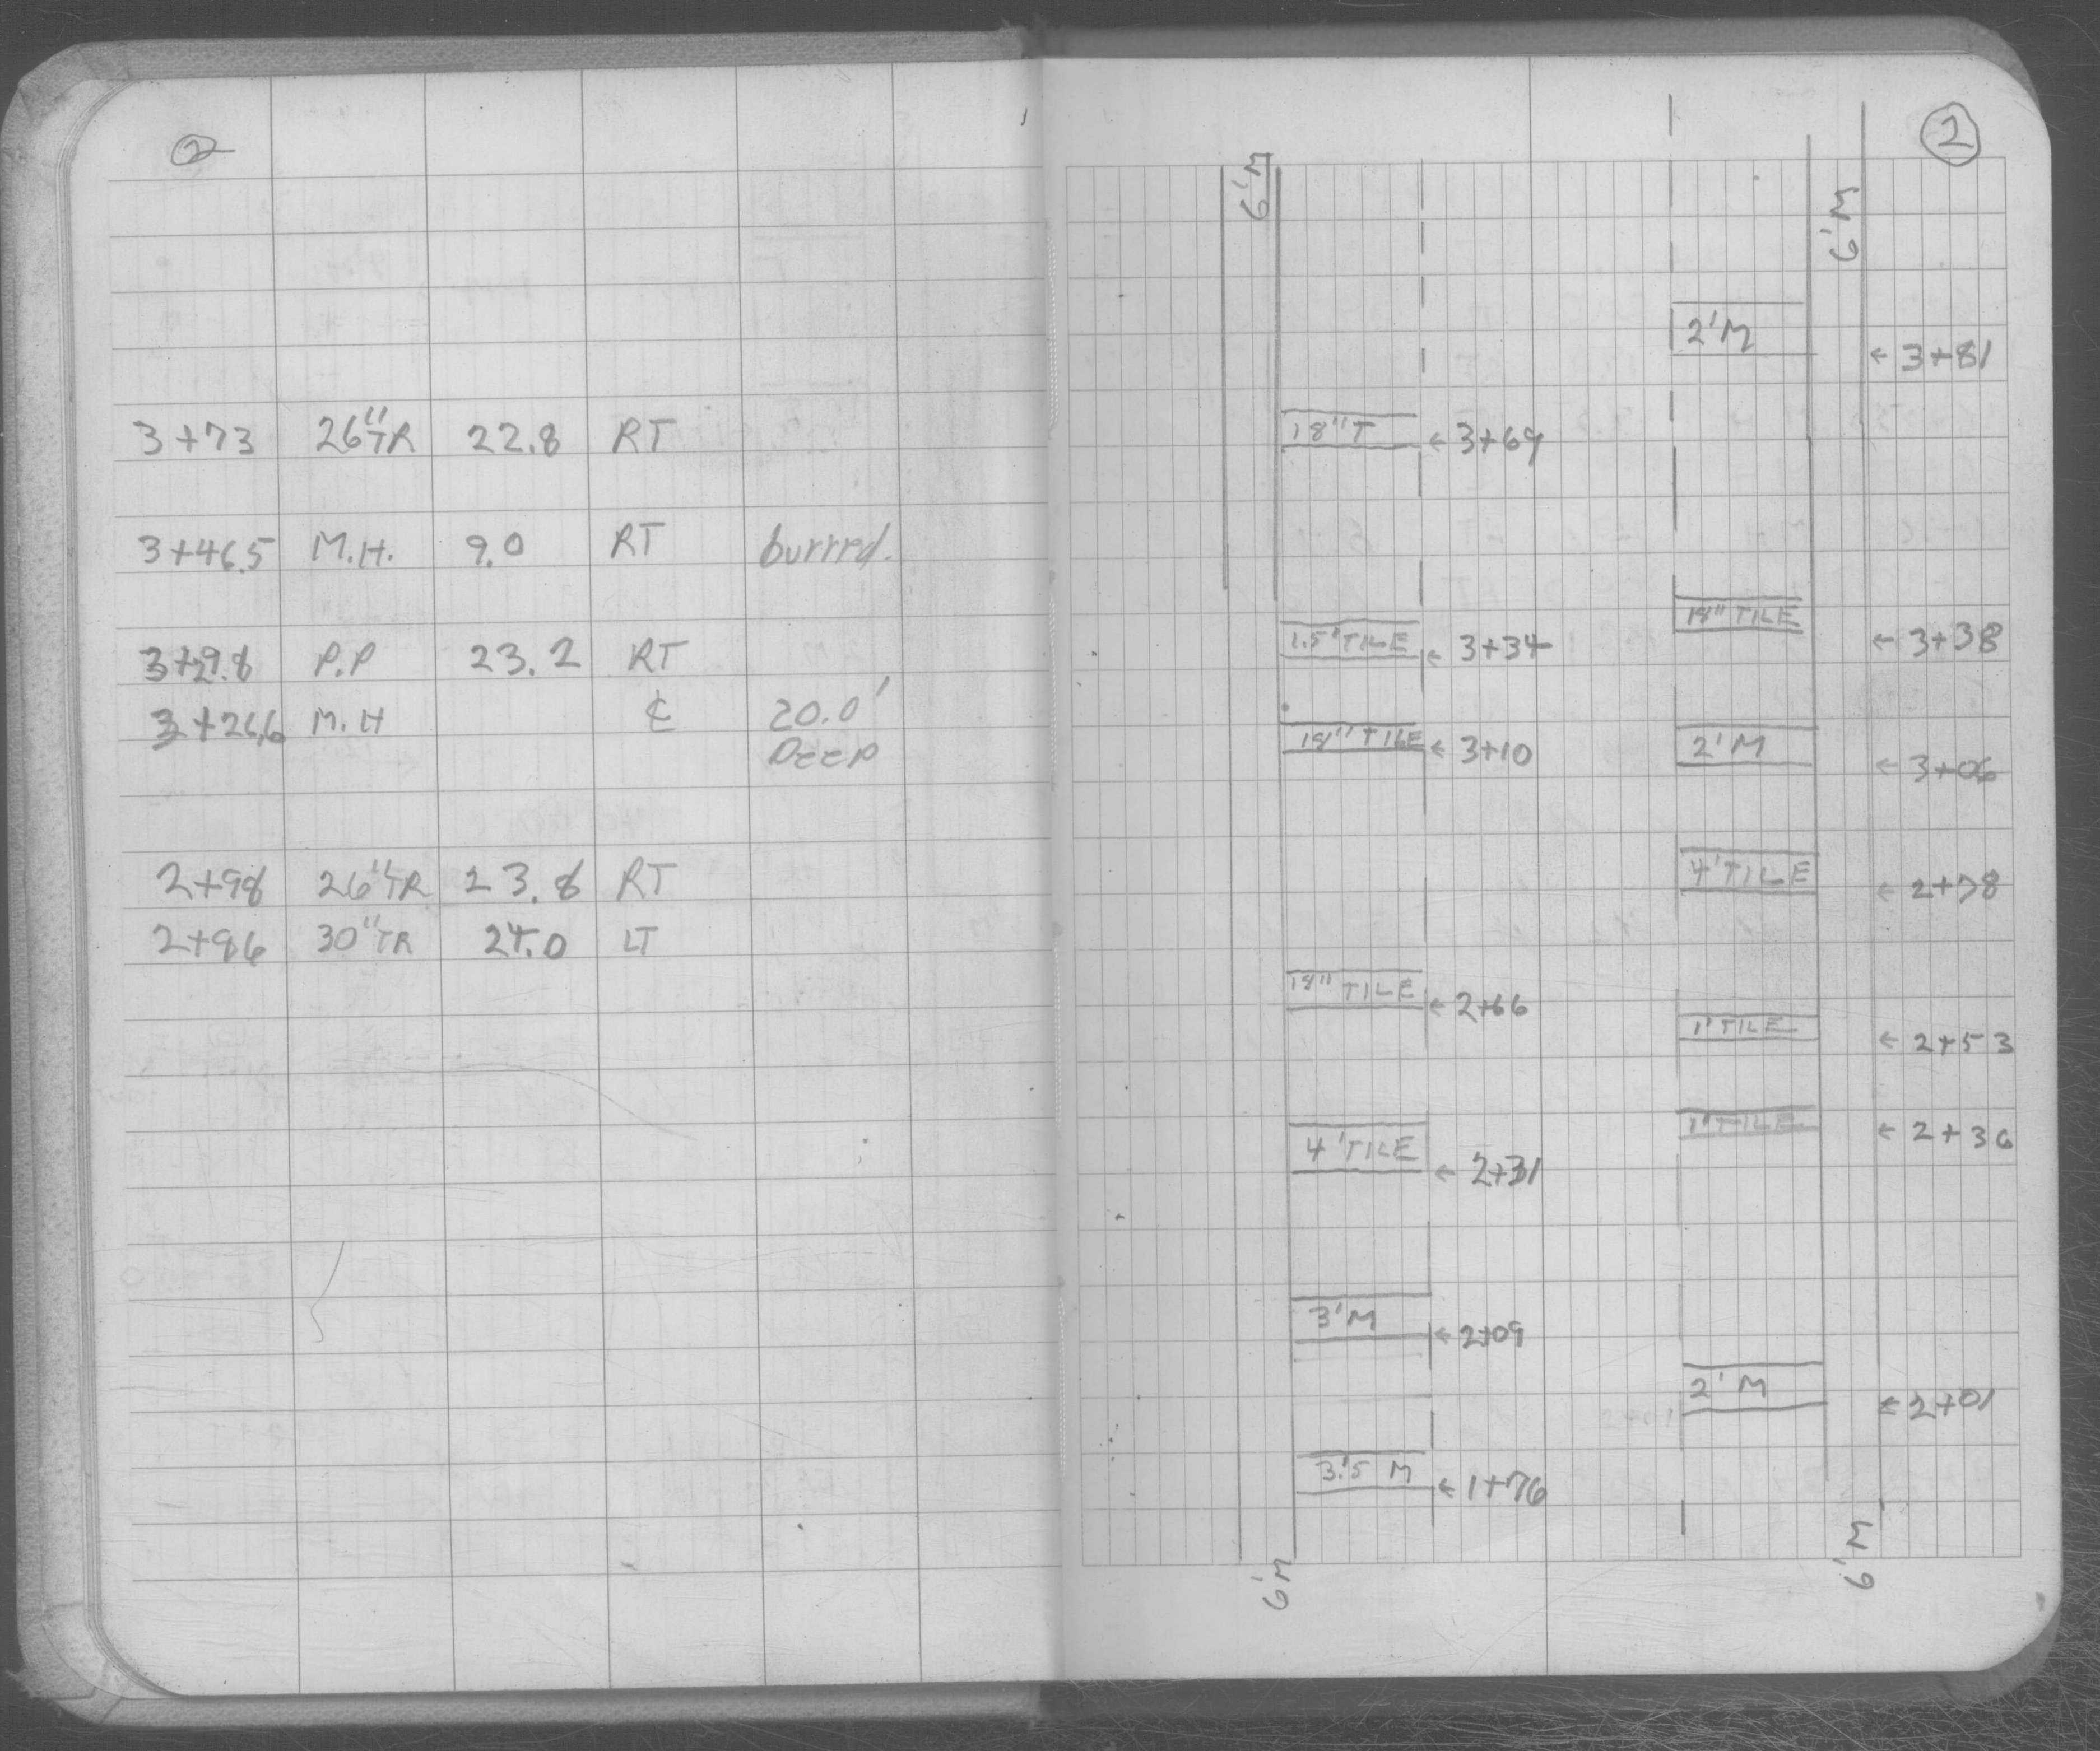 2
3+73 26"TR 22.8 RT
3+46.5 M.H. 9.0 RT burrrd.
3+29.8 P.P 23.2 RT
3+26.6 M.H ℄ 20.0'
DEEP
2+98 26"TR 23.8 RT
2+96 30"TR 24.0 LT
2
6'M
6'M
2'M ← 3+81
18"T ← 3+69
18" TILE ← 3+38
1.5' TILE ← 3+34
18" TILE ← 3+10
2'M ← 3+06
4' TILE ← 2+78
18" TILE ← 2+66
1' TILE ← 2+53
1' TILE ← 2+36
4' TILE ← 2+31
3'M ← 2+09
2'M ← 2+01
3.'5 M ← 1+76
6'M
6'M